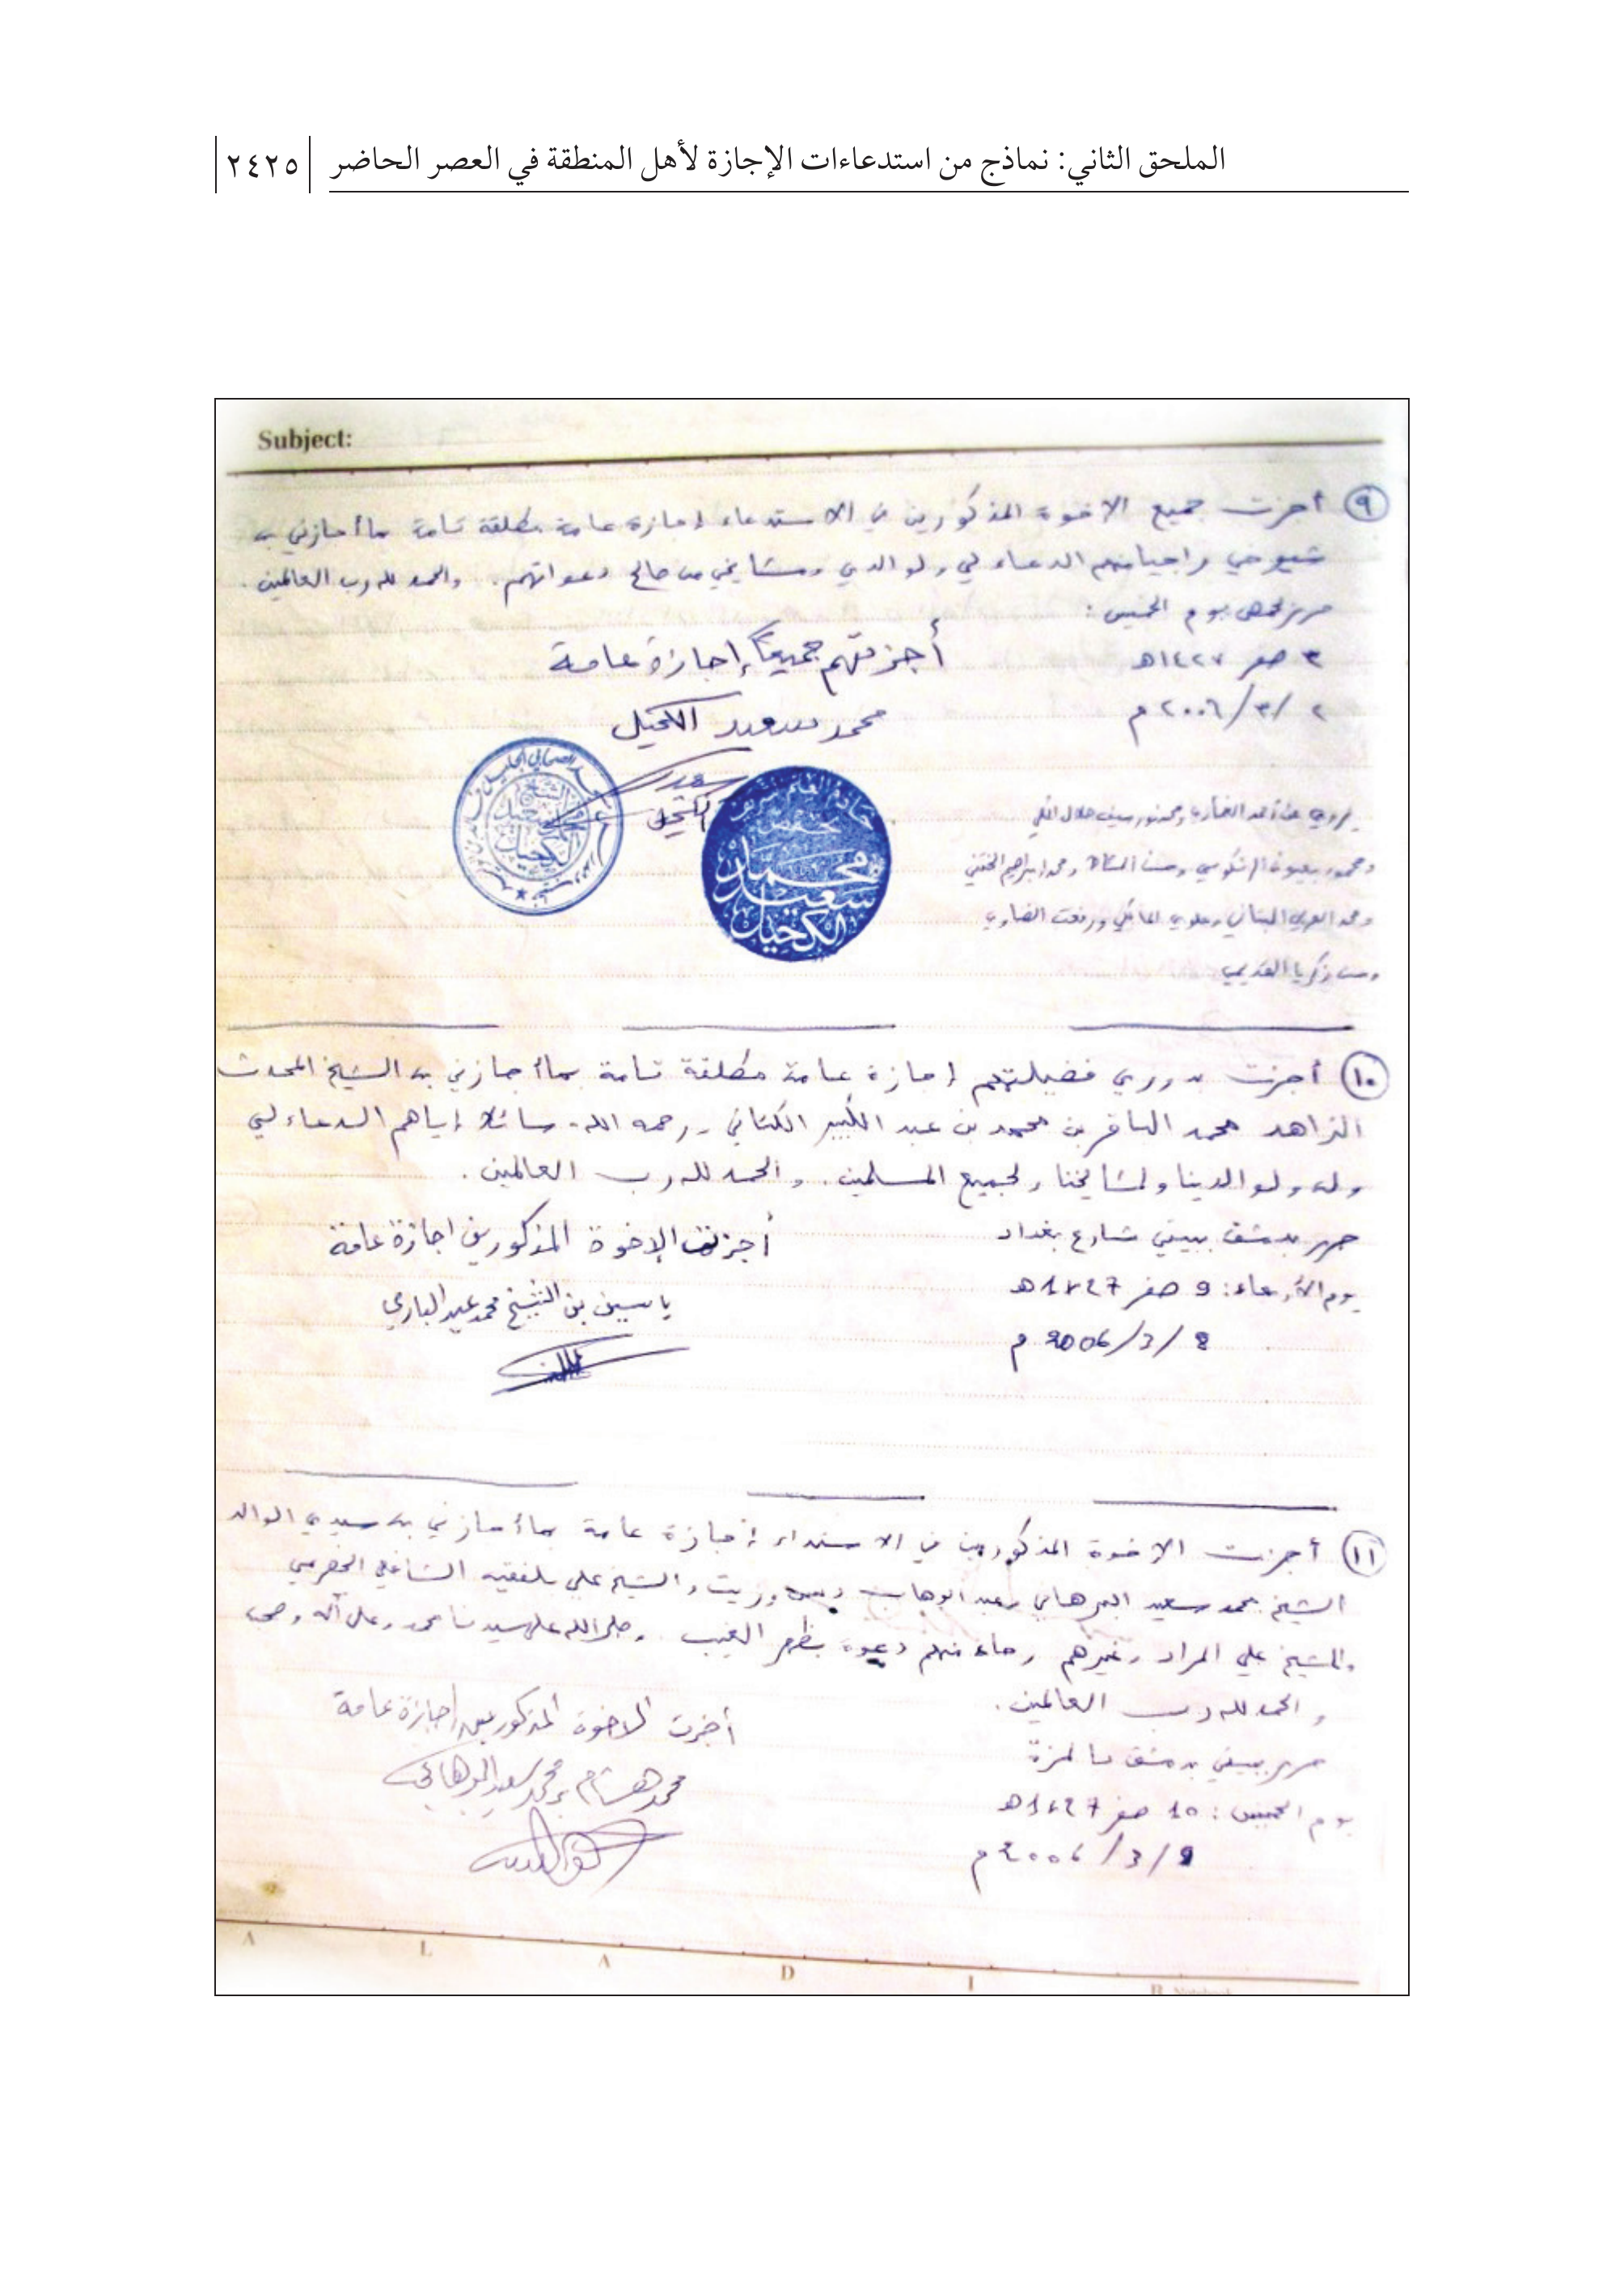 الملحق الثاني: نماذج من استدعاءات الإجازة لأهل المنطقة في العصر الحاضر ٢٤٢٥
Subject:
٩ أجزت جميع الاخوة المذكورين في الاستدعاء إجازة عامة مطلقة تامة بما أجازني به
شيوخي راجيا منهم الدعاء لي ولوالدي ومشايخي من صالح دعواتهم. والحمد لله رب العالمين.
حرر بحمص يوم الخميس:
٣ صفر ١٤٢٧هـ
٢ /٣/ ٢٠٠٦ م
أجزتهم جميعاً إجازة عامة
محمد سعيد الكحيل
سعيد
الكحيل
الشيخ
محمد سعيد
الكحيل
محمد
سعيد
الكحيل
يروي عن أحمد الغماري ومحمد نور سيف هلال المكي
ومحمد إبراهيم الختني
ومحمد العربي التباني وعلوي المالكي
١٠ أجزت بدوري فضيلتهم إجازة عامة مطلقة تامة بما أجازني به الشيخ المحدث
الزاهد محمد الباقر بن محمد بن عبد الكبير الكتاني - رحمه الله - سائلا إياهم الدعاء لي
وله ولوالدينا ولمشايخنا ولجميع المسلمين. والحمد لله رب العالمين.
حرر بدمشق ببيتي شارع بغداد
يوم الأربعاء: 9 صفر 1427 هـ
8 /3/ 2006 م
أجزت الإخوة المذكورين اجازة عامة
ياسين بن الشيخ محمد عبد الباري
١١ أجزت الاخوة المذكورين في الاستدعاء إجازة عامة بما أجازني به سيدي الوالد
الشيخ محمد سعيد البرهاني وعبد الوهاب دبس وزيت والشيخ علي بلفقيه الشافعي الحضرمي
والشيخ علي المراد وغيرهم رجاء منهم دعوة بظهر الغيب. وصلى الله على سيدنا محمد وعلى آله وصحبه
والحمد لله رب العالمين.
حرر ببيتي بدمشق بالمزة
يوم الخميس: 10 صفر 1427 هـ
9 /3/ 2006 م
أجزت الاخوة المذكورين إجازة عامة
محمد هشام بن محمد سعيد البرهاني
A L A D I B Notebook